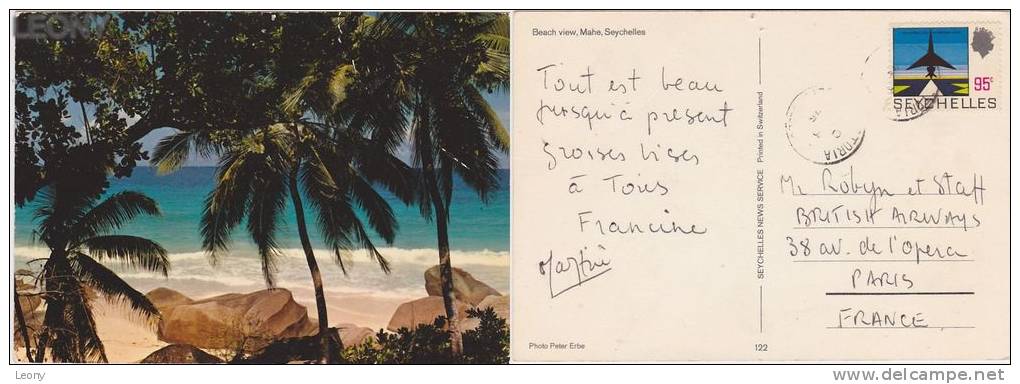 LEONY
Beach view, Mahe, Seychelles
Tout est beau
jusqu'à present
grosses bises
à Tous
Francine
Martine
SEYCHELLES NEWS SERVICE Printed in Switzerland
95c
SEYCHELLES
TORIA
Mr Robyn et Staff
BRITISH AIRWAYS
38 av. de l'Opera
PARIS
FRANCE
Photo Peter Erbe
122
Leony
delcampe.net